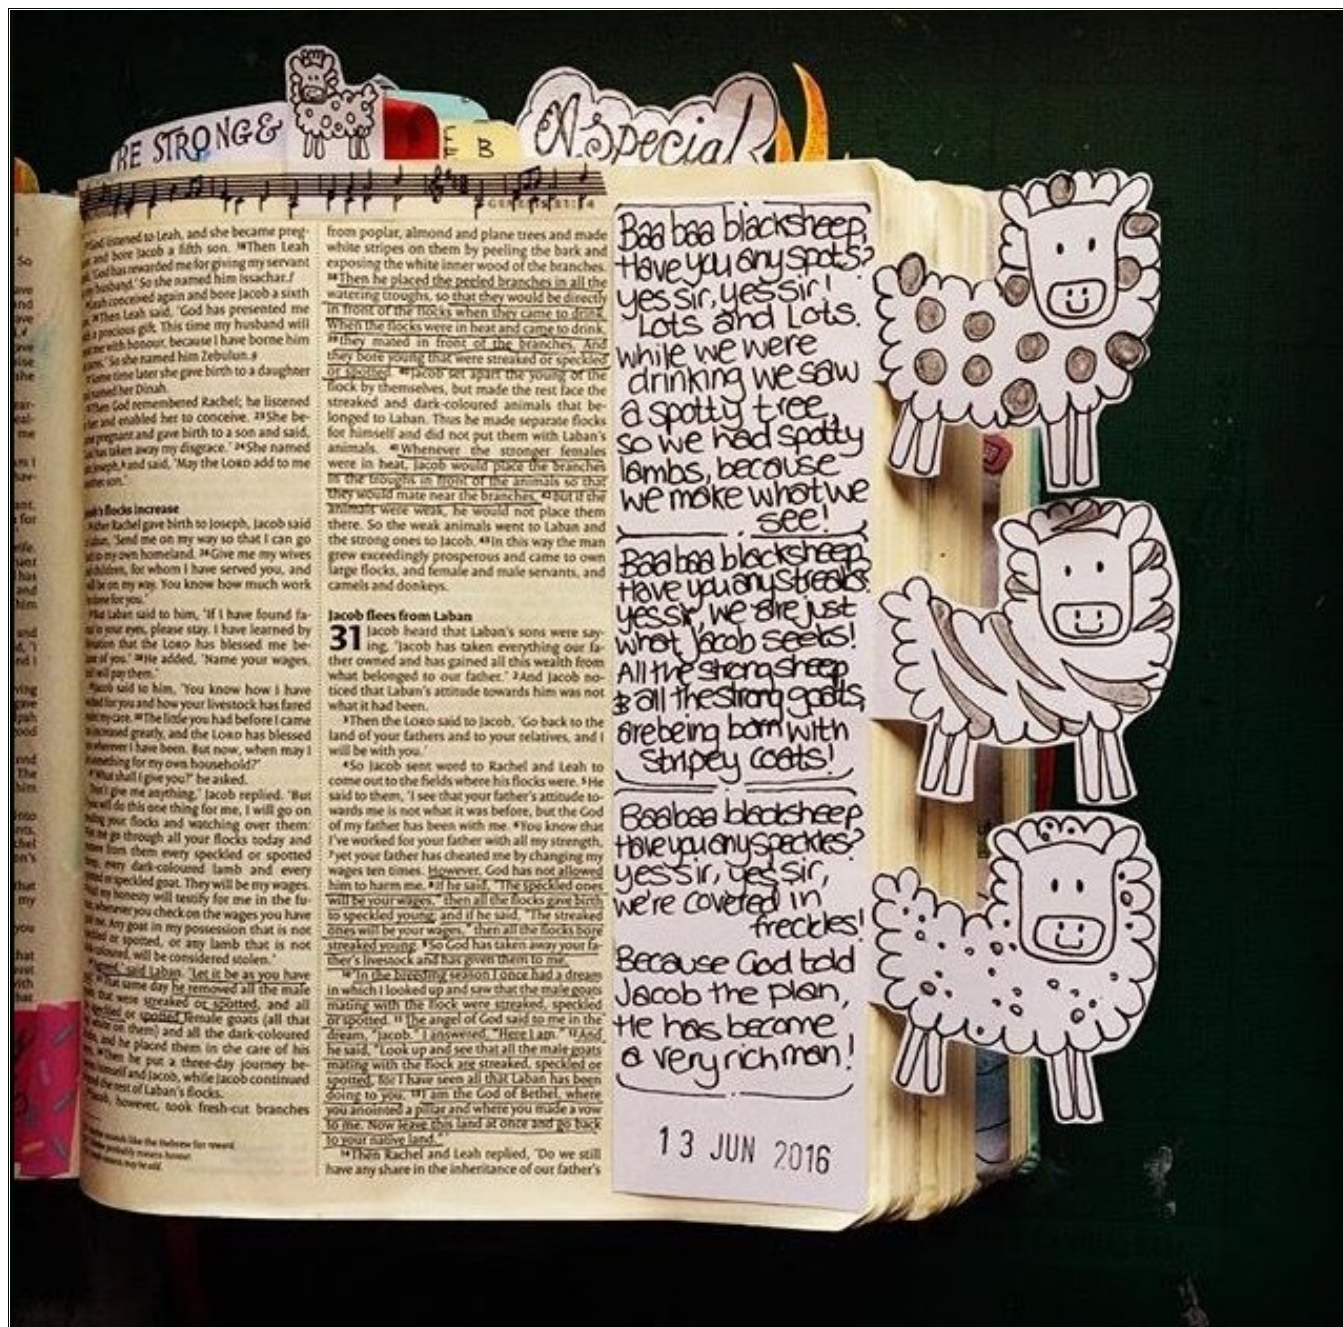 BE STRONG &
E B
F
A Special
GENESIS 31:14
God listened to Leah, and she became preg-
and bore Jacob a fifth son. 18Then Leah
'God has rewarded me for giving my servant
my husband.' So she named him Issachar.f
Leah conceived again and bore Jacob a sixth
Then Leah said, 'God has presented me
a precious gift. This time my husband will
me with honour, because I have borne him
So she named him Zebulun.g
Some time later she gave birth to a daughter
named her Dinah.
Then God remembered Rachel; he listened
her and enabled her to conceive. 23She be-
pregnant and gave birth to a son and said,
has taken away my disgrace.' 24She named
Joseph,h and said, 'May the LORD add to me
son.'
flocks increase
After Rachel gave birth to Joseph, Jacob said
Laban, 'Send me on my way so that I can go
to my own homeland. 26Give me my wives
children, for whom I have served you, and
be on my way. You know how much work
done for you.'
But Laban said to him, 'If I have found fa-
in your eyes, please stay. I have learned by
that the LORD has blessed me be-
of you.' 28He added, 'Name your wages,
will pay them.'
Jacob said to him, 'You know how I have
for you and how your livestock has fared
my care. 30The little you had before I came
increased greatly, and the LORD has blessed
wherever I have been. But now, when may I
something for my own household?'
'What shall I give you?' he asked.
'Don't give me anything,' Jacob replied. 'But
will do this one thing for me, I will go on
your flocks and watching over them:
me go through all your flocks today and
from them every speckled or spotted
every dark-coloured lamb and every
or speckled goat. They will be my wages.
my honesty will testify for me in the fu-
whenever you check on the wages you have
me. Any goat in my possession that is not
or spotted, or any lamb that is not
coloured, will be considered stolen.'
said Laban. 'Let it be as you have
That same day he removed all the male
that were streaked or spotted, and all
or spotted female goats (all that
white on them) and all the dark-coloured
and he placed them in the care of his
Then he put a three-day journey be-
himself and Jacob, while Jacob continued
the rest of Laban's flocks.
Jacob, however, took fresh-cut branches
sounds like the Hebrew for reward
probably means honour.
means may he add.
from poplar, almond and plane trees and made
white stripes on them by peeling the bark and
exposing the white inner wood of the branches.
38Then he placed the peeled branches in all the
watering troughs, so that they would be directly
in front of the flocks when they came to drink.
When the flocks were in heat and came to drink,
39they mated in front of the branches. And
they bore young that were streaked or speckled
or spotted. 40Jacob set apart the young of the
flock by themselves, but made the rest face the
streaked and dark-coloured animals that be-
longed to Laban. Thus he made separate flocks
for himself and did not put them with Laban's
animals. 41Whenever the stronger females
were in heat, Jacob would place the branches
in the troughs in front of the animals so that
they would mate near the branches, 42but if the
animals were weak, he would not place them
there. So the weak animals went to Laban and
the strong ones to Jacob. 43In this way the man
grew exceedingly prosperous and came to own
large flocks, and female and male servants, and
camels and donkeys.
Jacob flees from Laban
31 Jacob heard that Laban's sons were say-
ing, 'Jacob has taken everything our fa-
ther owned and has gained all this wealth from
what belonged to our father.' 2And Jacob no-
ticed that Laban's attitude towards him was not
what it had been.
3Then the LORD said to Jacob, 'Go back to the
land of your fathers and to your relatives, and I
will be with you.'
4So Jacob sent word to Rachel and Leah to
come out to the fields where his flocks were. 5He
said to them, 'I see that your father's attitude to-
wards me is not what it was before, but the God
of my father has been with me. 6You know that
I've worked for your father with all my strength,
7yet your father has cheated me by changing my
wages ten times. However, God has not allowed
him to harm me. 8If he said, "The speckled ones
will be your wages," then all the flocks gave birth
to speckled young; and if he said, "The streaked
ones will be your wages," then all the flocks bore
streaked young. 9So God has taken away your fa-
ther's livestock and has given them to me.
10'In the breeding season I once had a dream
in which I looked up and saw that the male goats
mating with the flock were streaked, speckled
or spotted. 11The angel of God said to me in the
dream, "Jacob." I answered, "Here I am." 12And
he said, "Look up and see that all the male goats
mating with the flock are streaked, speckled or
spotted, for I have seen all that Laban has been
doing to you. 13I am the God of Bethel, where
you anointed a pillar and where you made a vow
to me. Now leave this land at once and go back
to your native land."'
14Then Rachel and Leah replied, 'Do we still
have any share in the inheritance of our father's
Baa baa blacksheep,
Have you any spots?
yes sir, yes sir!
Lots and Lots.
while we were
drinking we saw
a spotty tree,
so we had spotty
lambs, because
we make what we
see!
Baa baa blacksheep,
Have you any streaks?
yes sir, we are just
what Jacob seeks!
All the strong sheep
& all the strong goats,
are being born with
stripey coats!
Baa baa blacksheep
Have you any speckles?
yes sir, yes sir,
we're covered in
freckles!
Because God told
Jacob the plan,
He has become
a very rich man!
13 JUN 2016